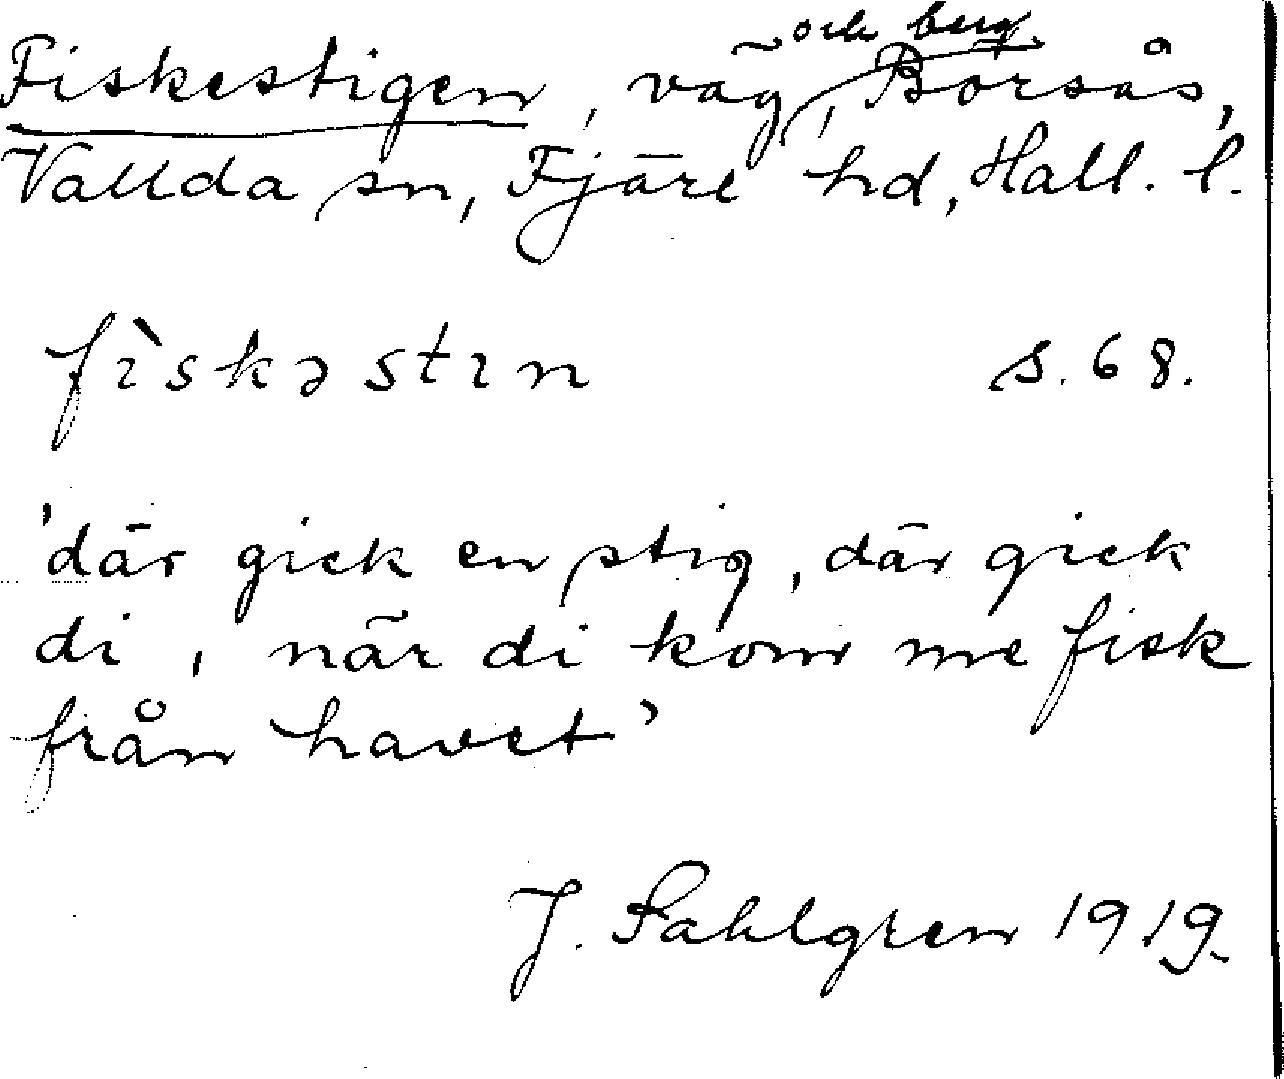 Fiskestigen, väg och berg, Borsås,
Vallda sn, Fjäre hd, Hall. l.
fìskəstɪn s. 68.
'där gick en stig, där gick
di, när di kom me fisk
från havet'
J. Sahlgren 1919.